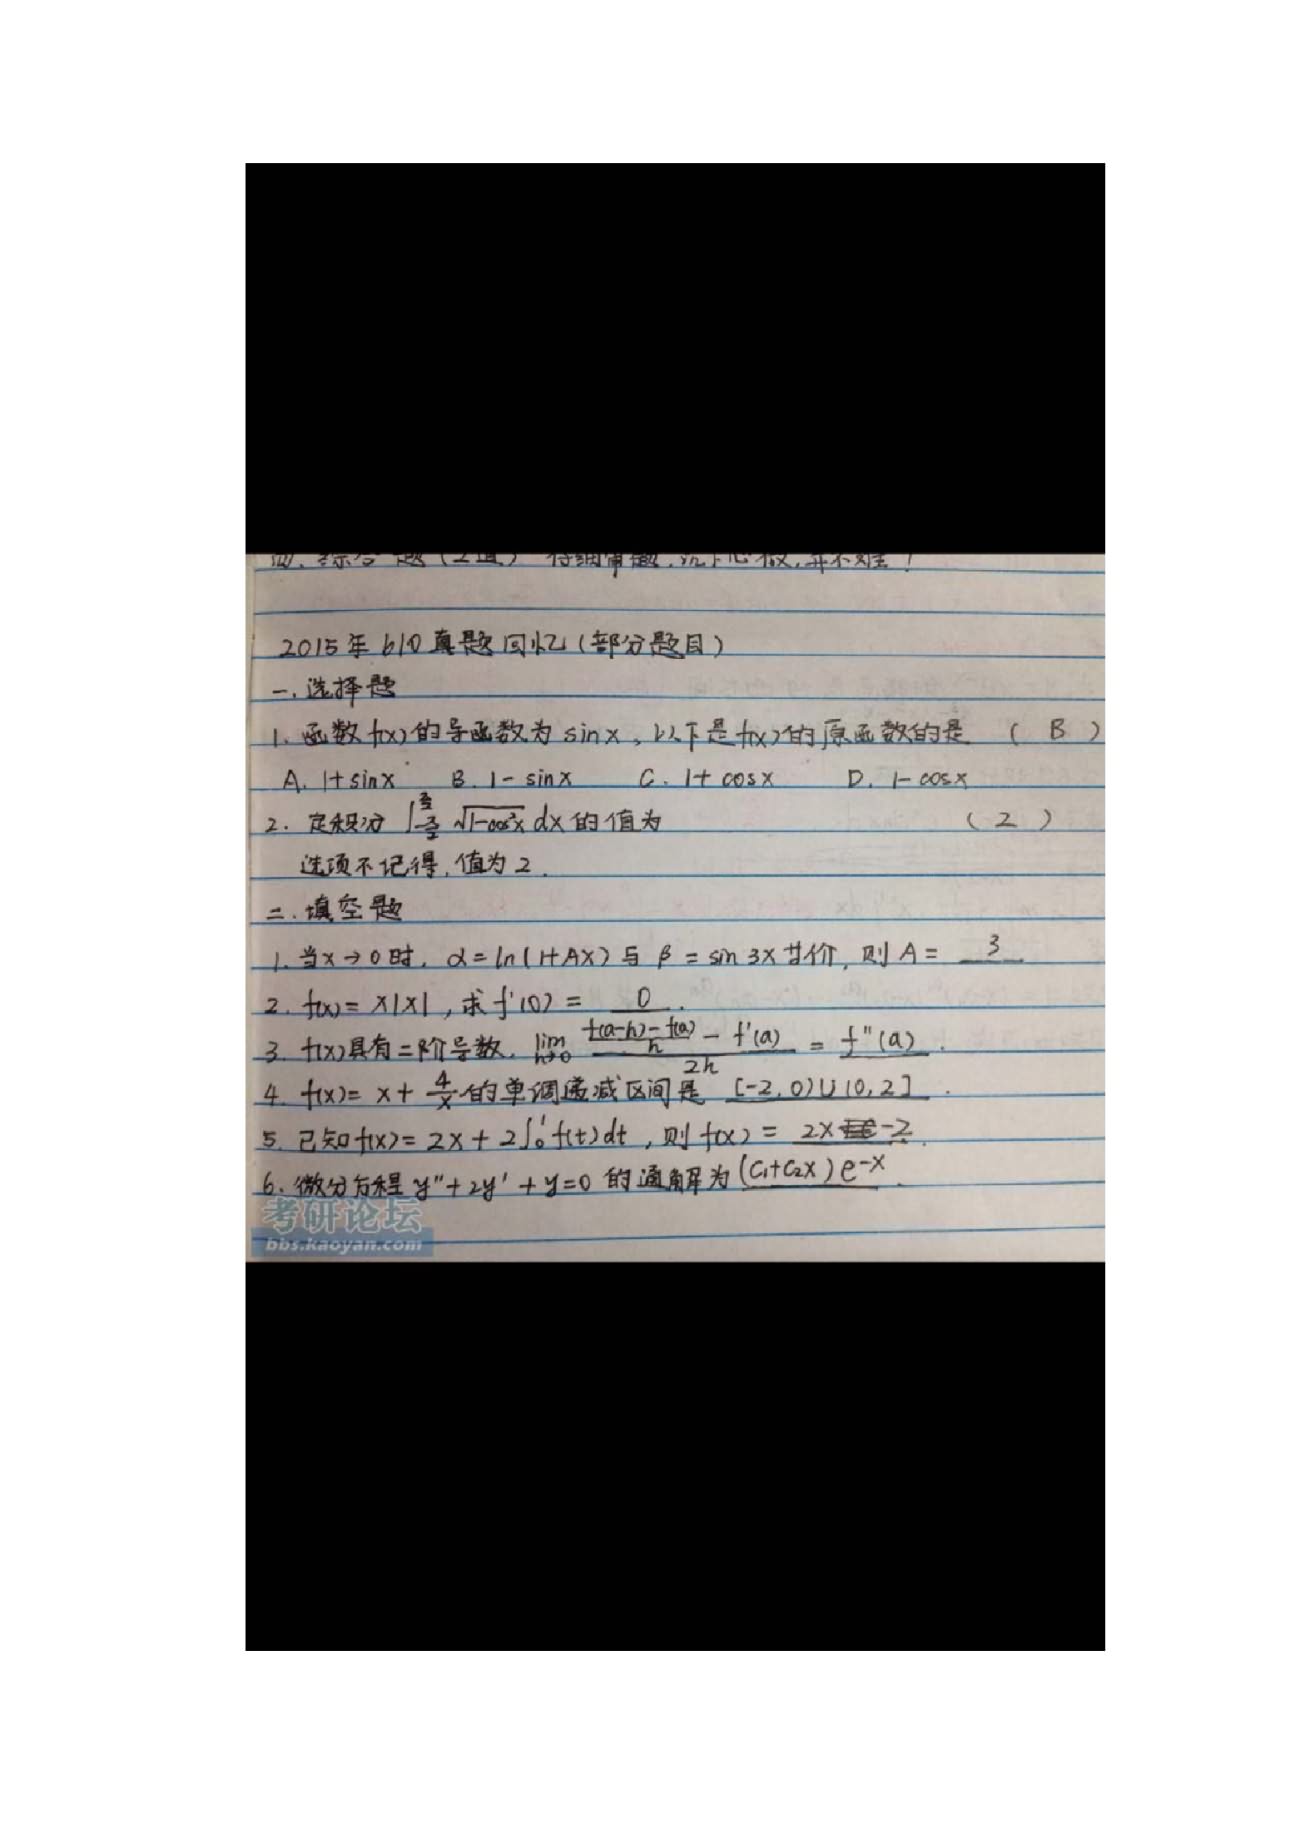 四.综合题(2道) 仔细审题,沉下心做,并不难!
2015年610真题回忆(部分题目)
一.选择题
1.函数f(x)的导函数为sinx,以下是f(x)的原函数的是 ( B )
A. 1+sinx B. 1-sinx C. 1+cosx D. 1-cosx
2. 定积分 ∫_{-π/2}^{π/2} √(1-cos²x) dx的值为 ( 2 )
选项不记得,值为2.
二.填空题
1.当x→0时, α=ln(1+Ax)与β=sin3x等价,则A= 3
2. f(x)=x|x|,求f'(0)= 0 .
3. f(x)具有二阶导数, lim_{h→0} ((f(a-h)-f(a))/h - f'(a))/2h = f''(a) .
4. f(x)= x+4/x 的单调递减区间是 [-2,0)∪(0,2] .
5. 已知f(x)=2x+2∫_0^1 f(t)dt,则f(x)= 2x-2 .
6. 微分方程y''+2y'+y=0的通解为(C₁+C₂x)e^{-x} .
考研论坛
bbs.kaoyan.com